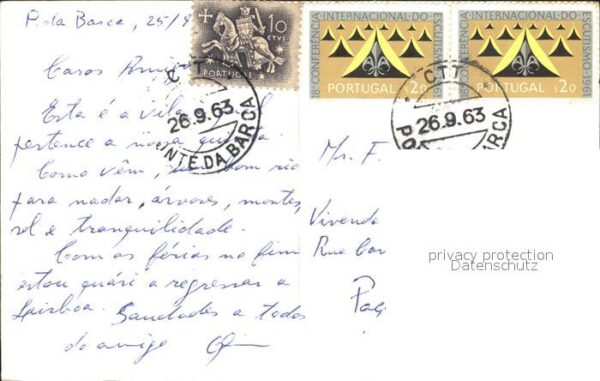 P. da Barca, 25/9
10
CTVS.
PORTUGAL
18ª CONFERÊNCIA INTERNACIONAL DO ESCUTISMO 1961
PORTUGAL $20
18ª CONFERÊNCIA INTERNACIONAL DO ESCUTISMO 1961
PORTUGAL $20
CTT
26.9.63
NTE DA BARCA
CTT
26.9.63
PO BARCA
Caros Amig
Esta é a vila
pertence a nossa
Como vêm, bom rio
para nadar, árvores, montes,
sol e tranquilidade.
Com as férias no fim
estou quási a regressar a
Lisboa. Saudades a todos
do amigo
Mr. F.
Vivenda
Rua Cor
Paç
privacy protection
Datenschutz